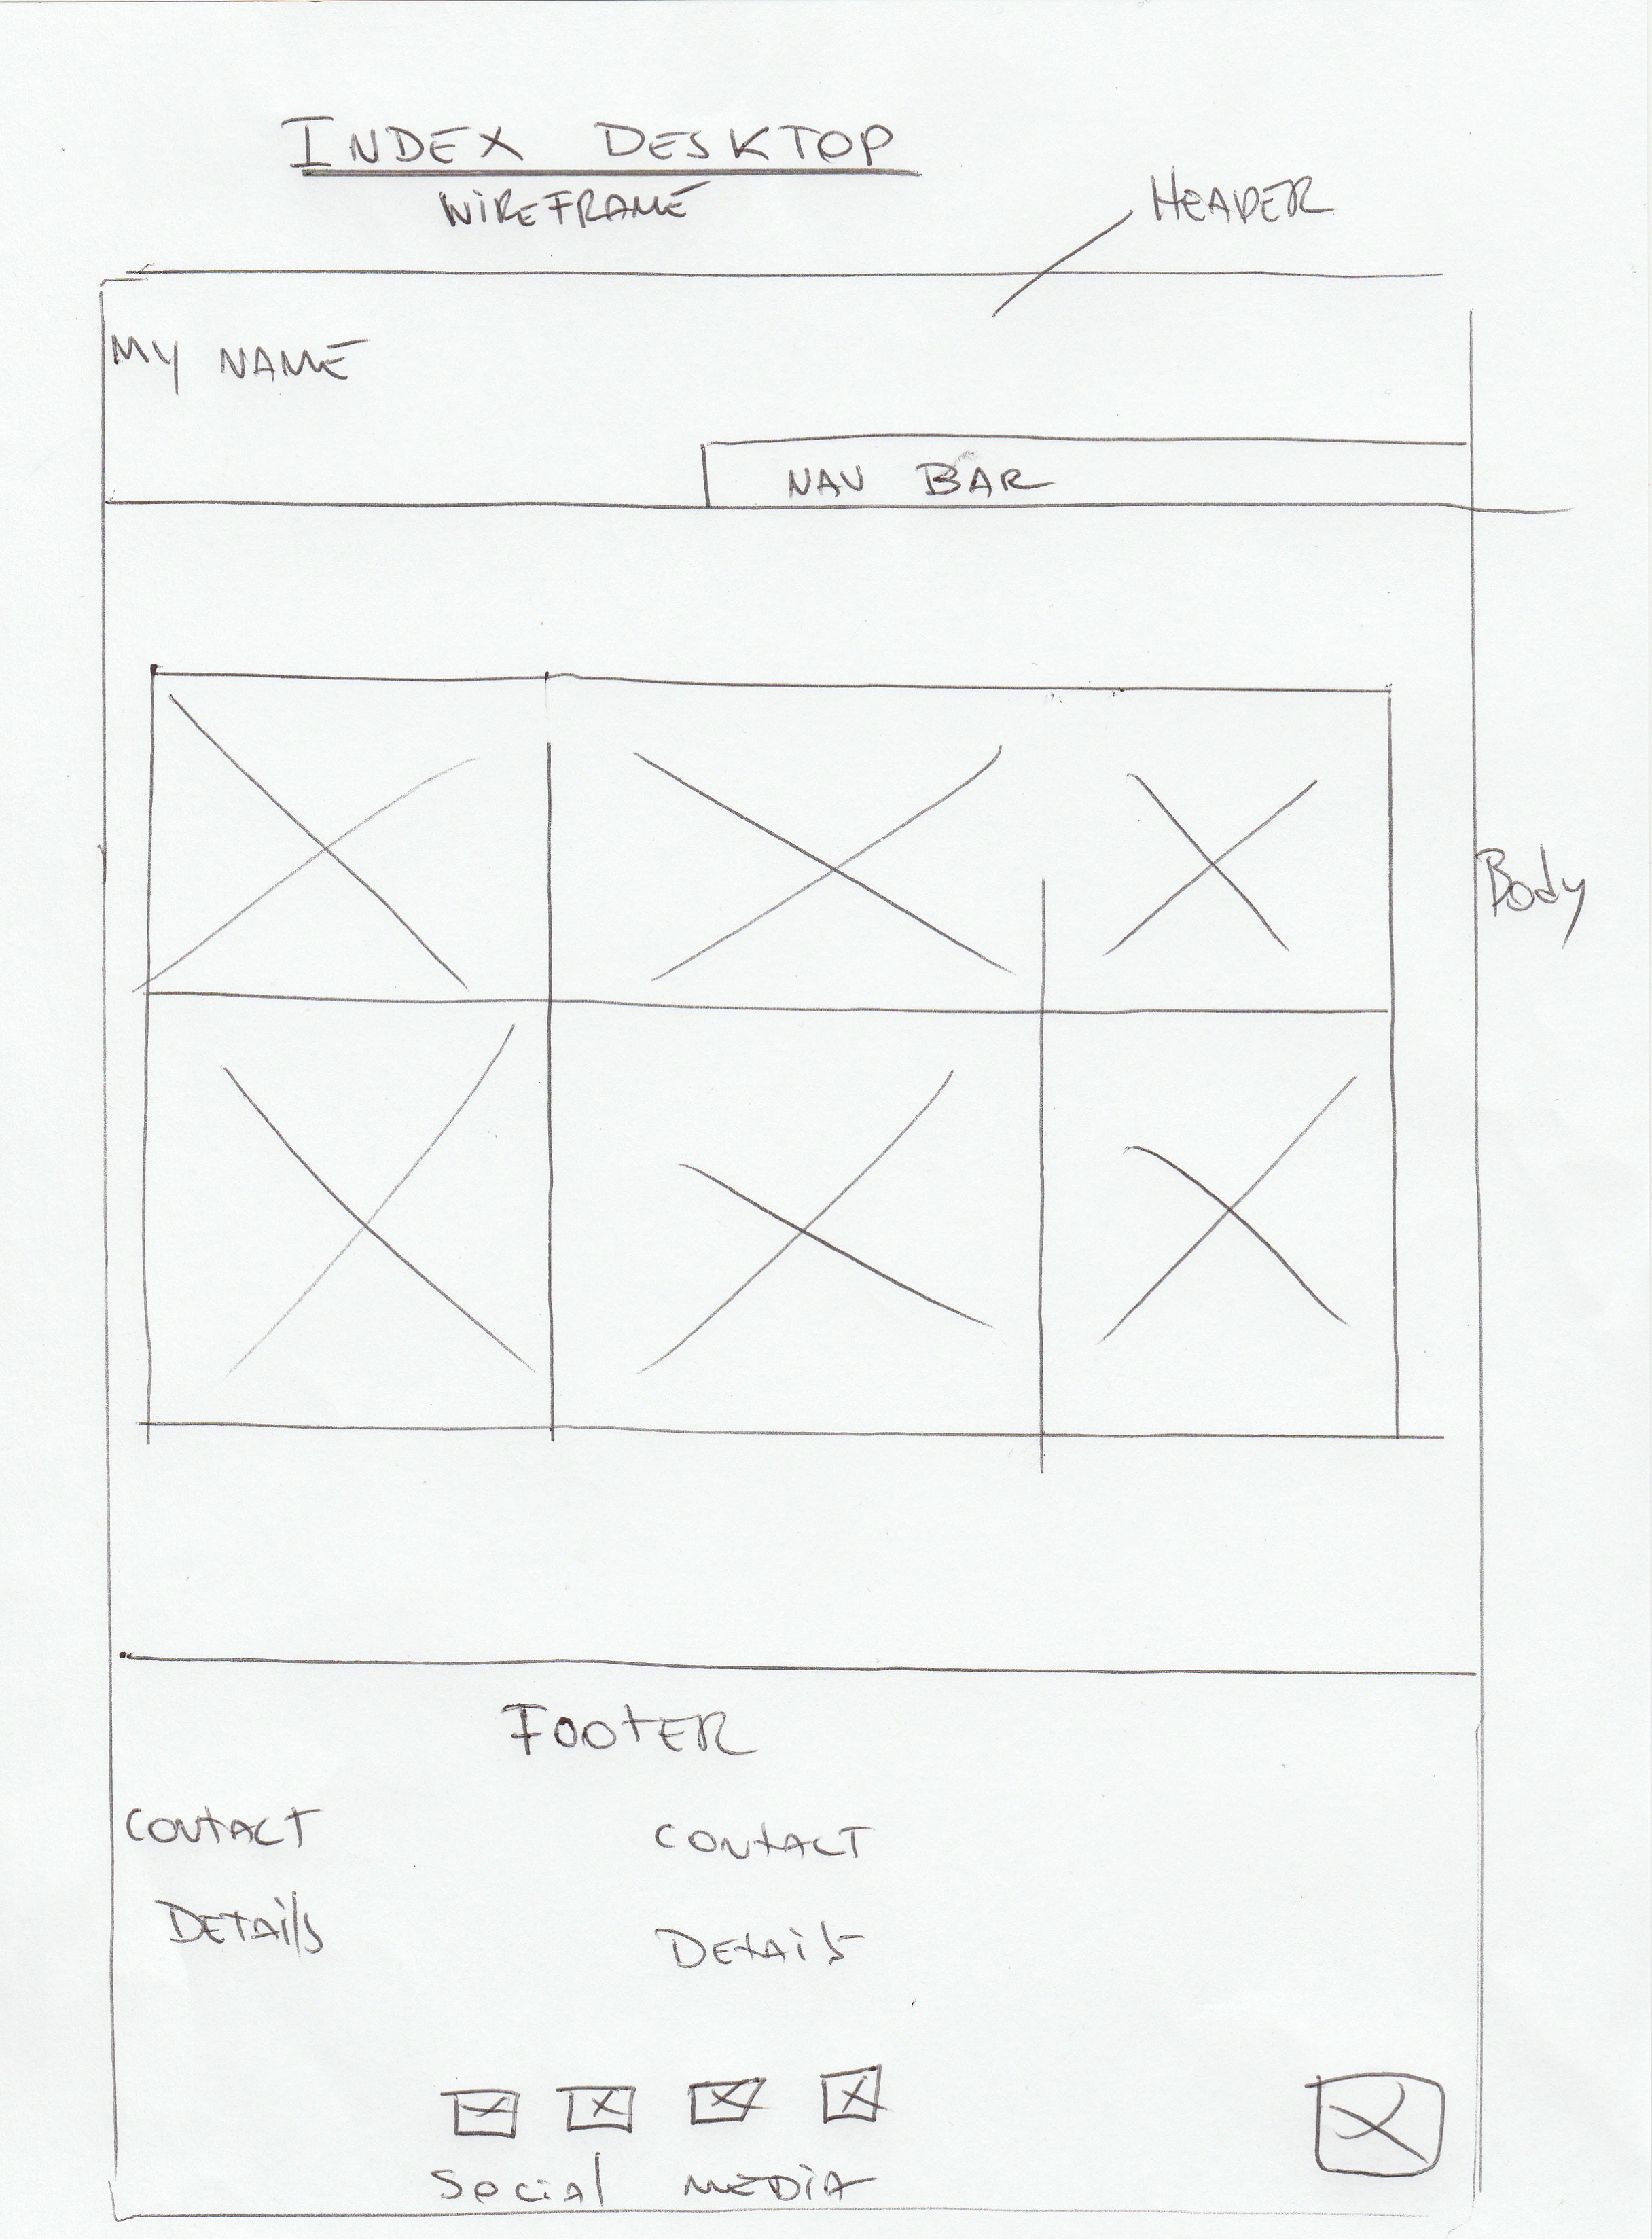 INDEX DESKTOP
WIREFRAME
HEADER
MY NAME
NAV BAR
Body
FOOTER
CONTACT
DETAILS
CONTACT
DETAILS
SOCIAL MEDIA